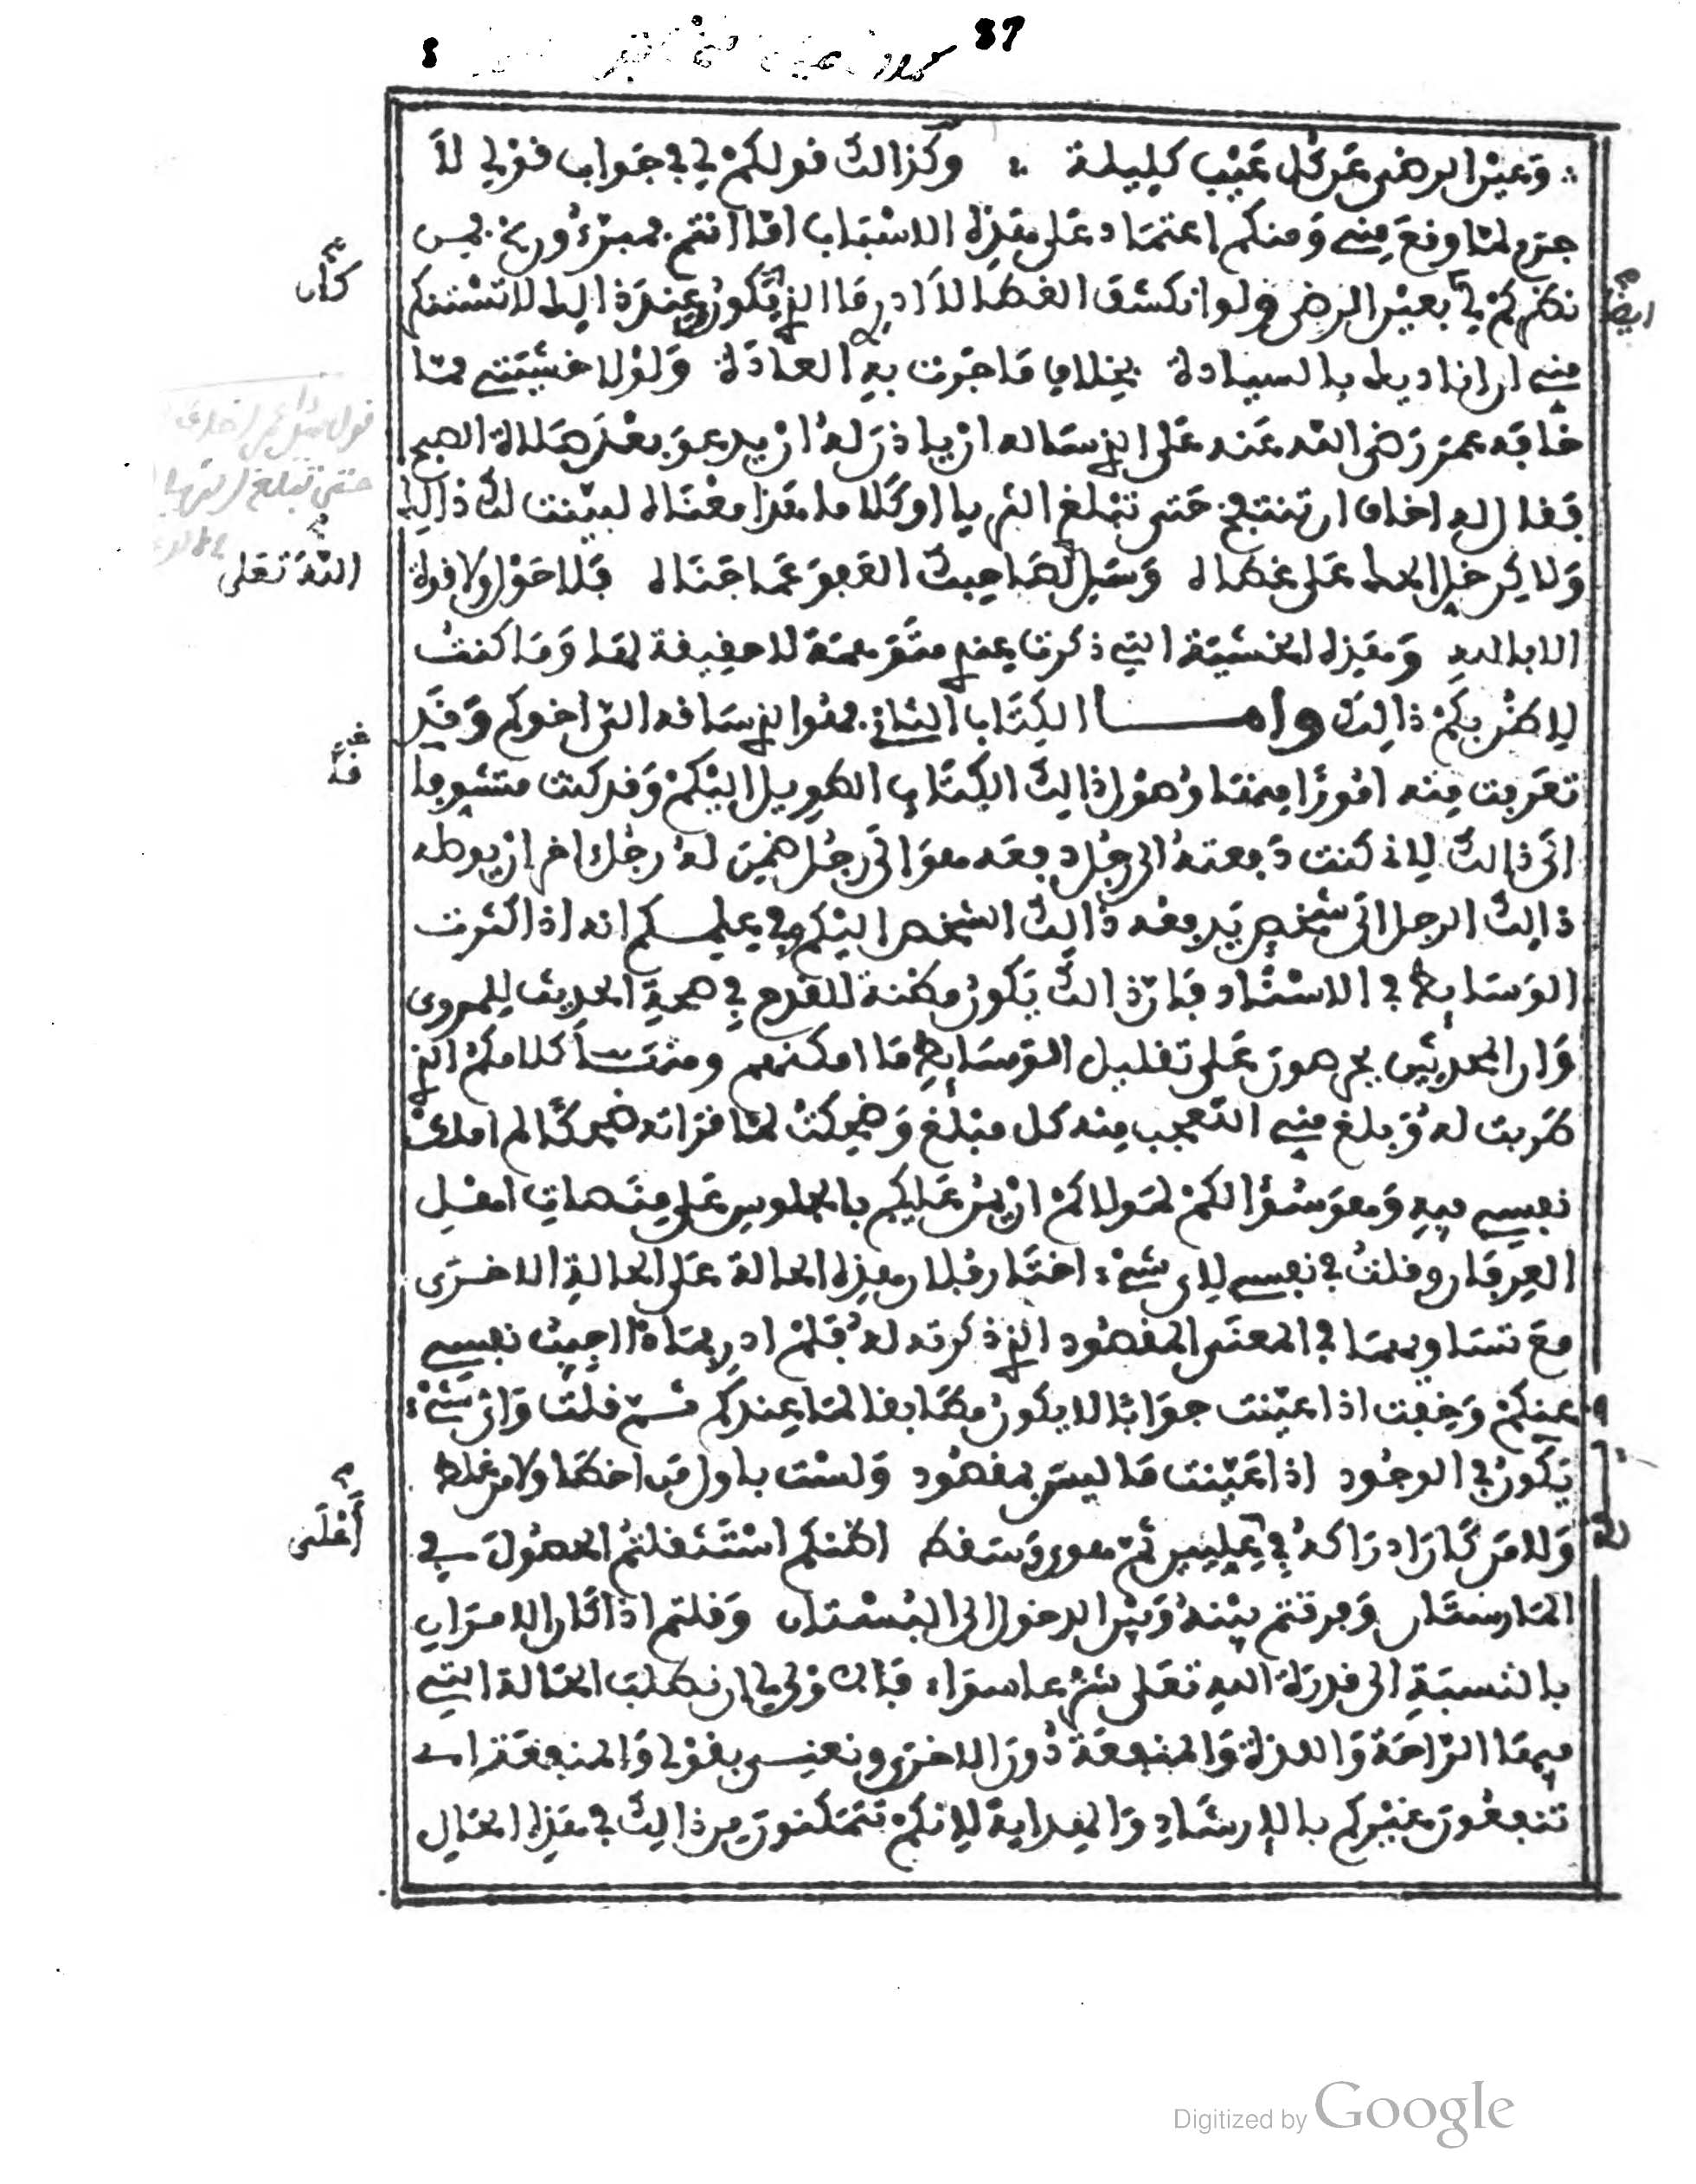 وعين الرضى عن كل عيب كليلة ∴ وكذالك قولكم لي في جواب قولي لا
جرم لما وقع مني ومنكم اعتماد على هذه الاسباب اما انتم
نظركم لي بعين الرضى ولو انكشف الغطا لا ادري ما الذي يكون عند ذالك لا تستنكر
مني ان اناديك بالسيادة بخلاف ما جرت به العادة ولولا خشيتي مما
خافه عمر رضي الله عنه على الذي ساله ان ياذن له ان يدعو بعد صلاة الصبح
فقال له اخاف ان تنتفخ حتى تبلغ الثريا او كلاما هذا معناه لبينت لك ذالك
ولاكن خل المخبا على غطاه وسل لصاحبك العفو عما جناه فلا حول ولا قوة
الا بالله وهذه الخشية التي ذكرتها عني متوهمة لا حقيقة لها وما كنت
لاظن بكم ذالك واما الكتاب الثاني فهو الذي ساقه الي اخوكم وقد
تعرفت منه امورا منها وصول ذالك الكتاب الطويل اليكم وقد كنت متشوفا
الى ذالك لاني كنت دفعته الى رجل دفعه هو الى رجل ضمن له رجل اخر ان يوصله
ذالك الرجل الى شخص يدفعه ذالك الشخص اليكم وفي علمكم انه اذا كثرت
الوسايط في الاسناد فان ذالك يكون مظنة للقدح في صحة الحديث المروى
وان المحدثين يحرصون على تقليل الوسايط ما امكنهم ومنها كلامكم الذي
طربت له وبلغ مني التعجب منه كل مبلغ وضحكت لما قراته ضحكا لم املك
نفسي فيه وهو سؤالكم لمولاكم ان يمن عليكم بالجلوس على منصات اهل
العرفان وقلت في نفسي لاي شيء اختار فلان هذه الحالة على الحالة الاخرى
مع تساويهما في المعنى المقصود الذي ذكرته له فلم ادر بماذا اجيب نفسي
عنكم وخفت اذا عينت جوابا لا يكون مطابقا لما عندكم ثم قلت واي شيء
يكون في الوجود اذا عينت ما ليس بمقصود ولست باول من اخطا ولا من غلط
ولا من كان ادراكه في عليين ثم هوى وسقط اظنكم استثقلتم الحصول في
المارستان وفرقتم بينه وبين الدخول الى البستان وقلتم اذا كان الامران
بالنسبة الى قدرة الله تعلى شرعا سواء فالاولى بنا ان نطلب الحالة التي
فيها الراحة واللذة والمنفعة دون الاخرى ونعني بقولي والمنفعة اي
تنفعون غيركم بالارشاد والهداية لانكم تتمكنون من ذالك في هذا الحال
ايضا
كان
الله تعلى
اعلى
37
Digitized by Google